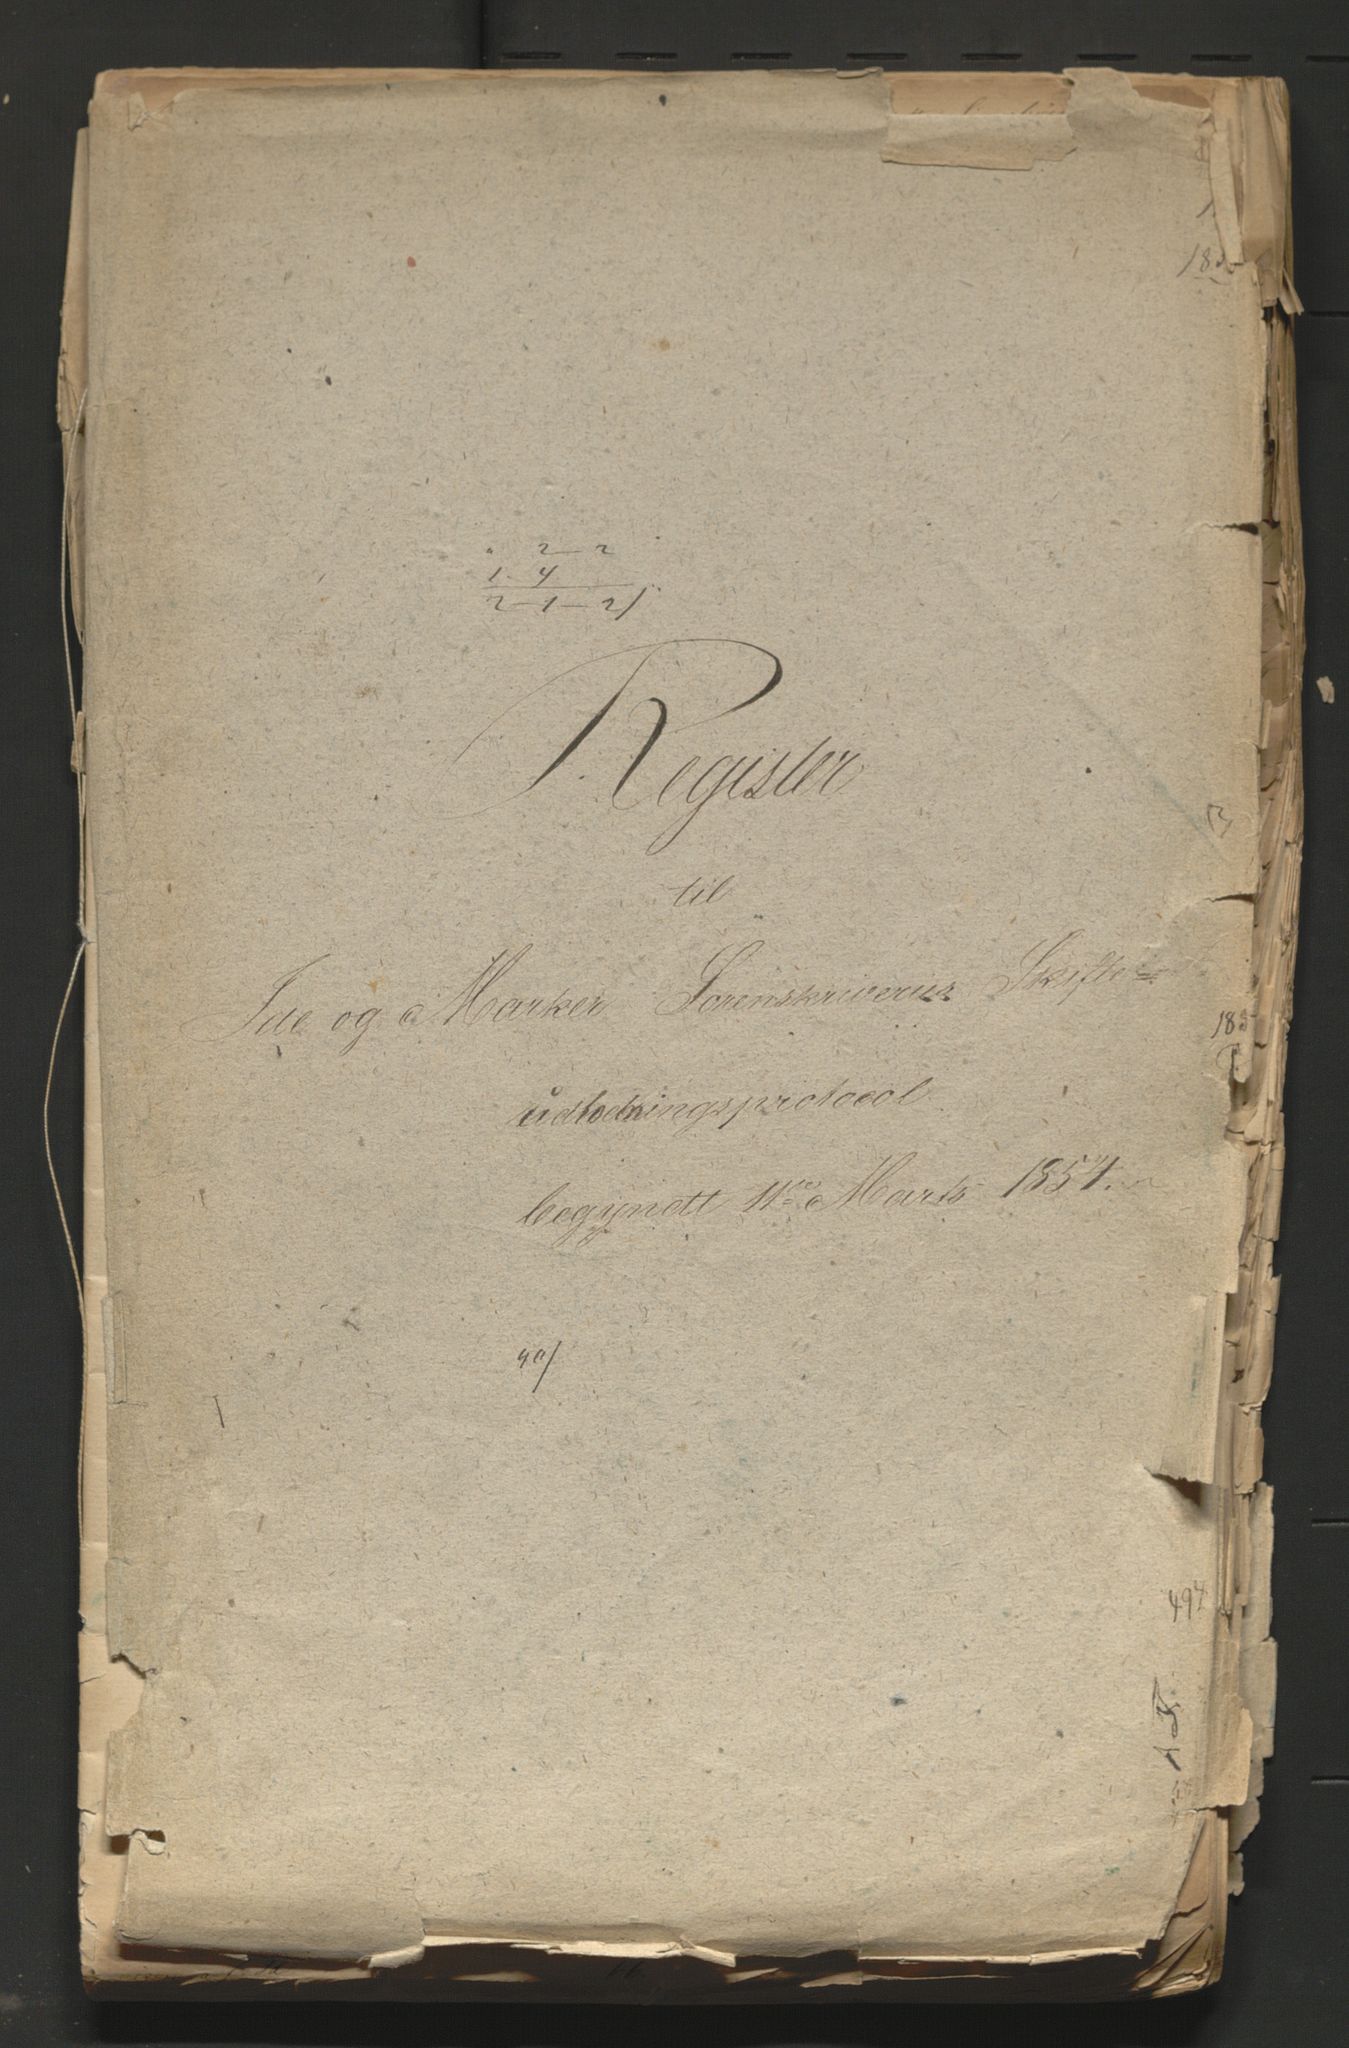 2 2
1. 4
2-1-2/
Register
til
Ide og Marker Sorenskriveries Skifte=
udlodningsprotocol
begyndt 11te Marts 1854.
40/
185
494